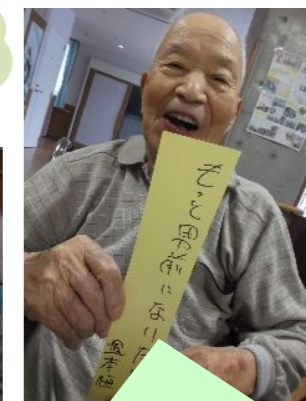 もっと男前になりた
本